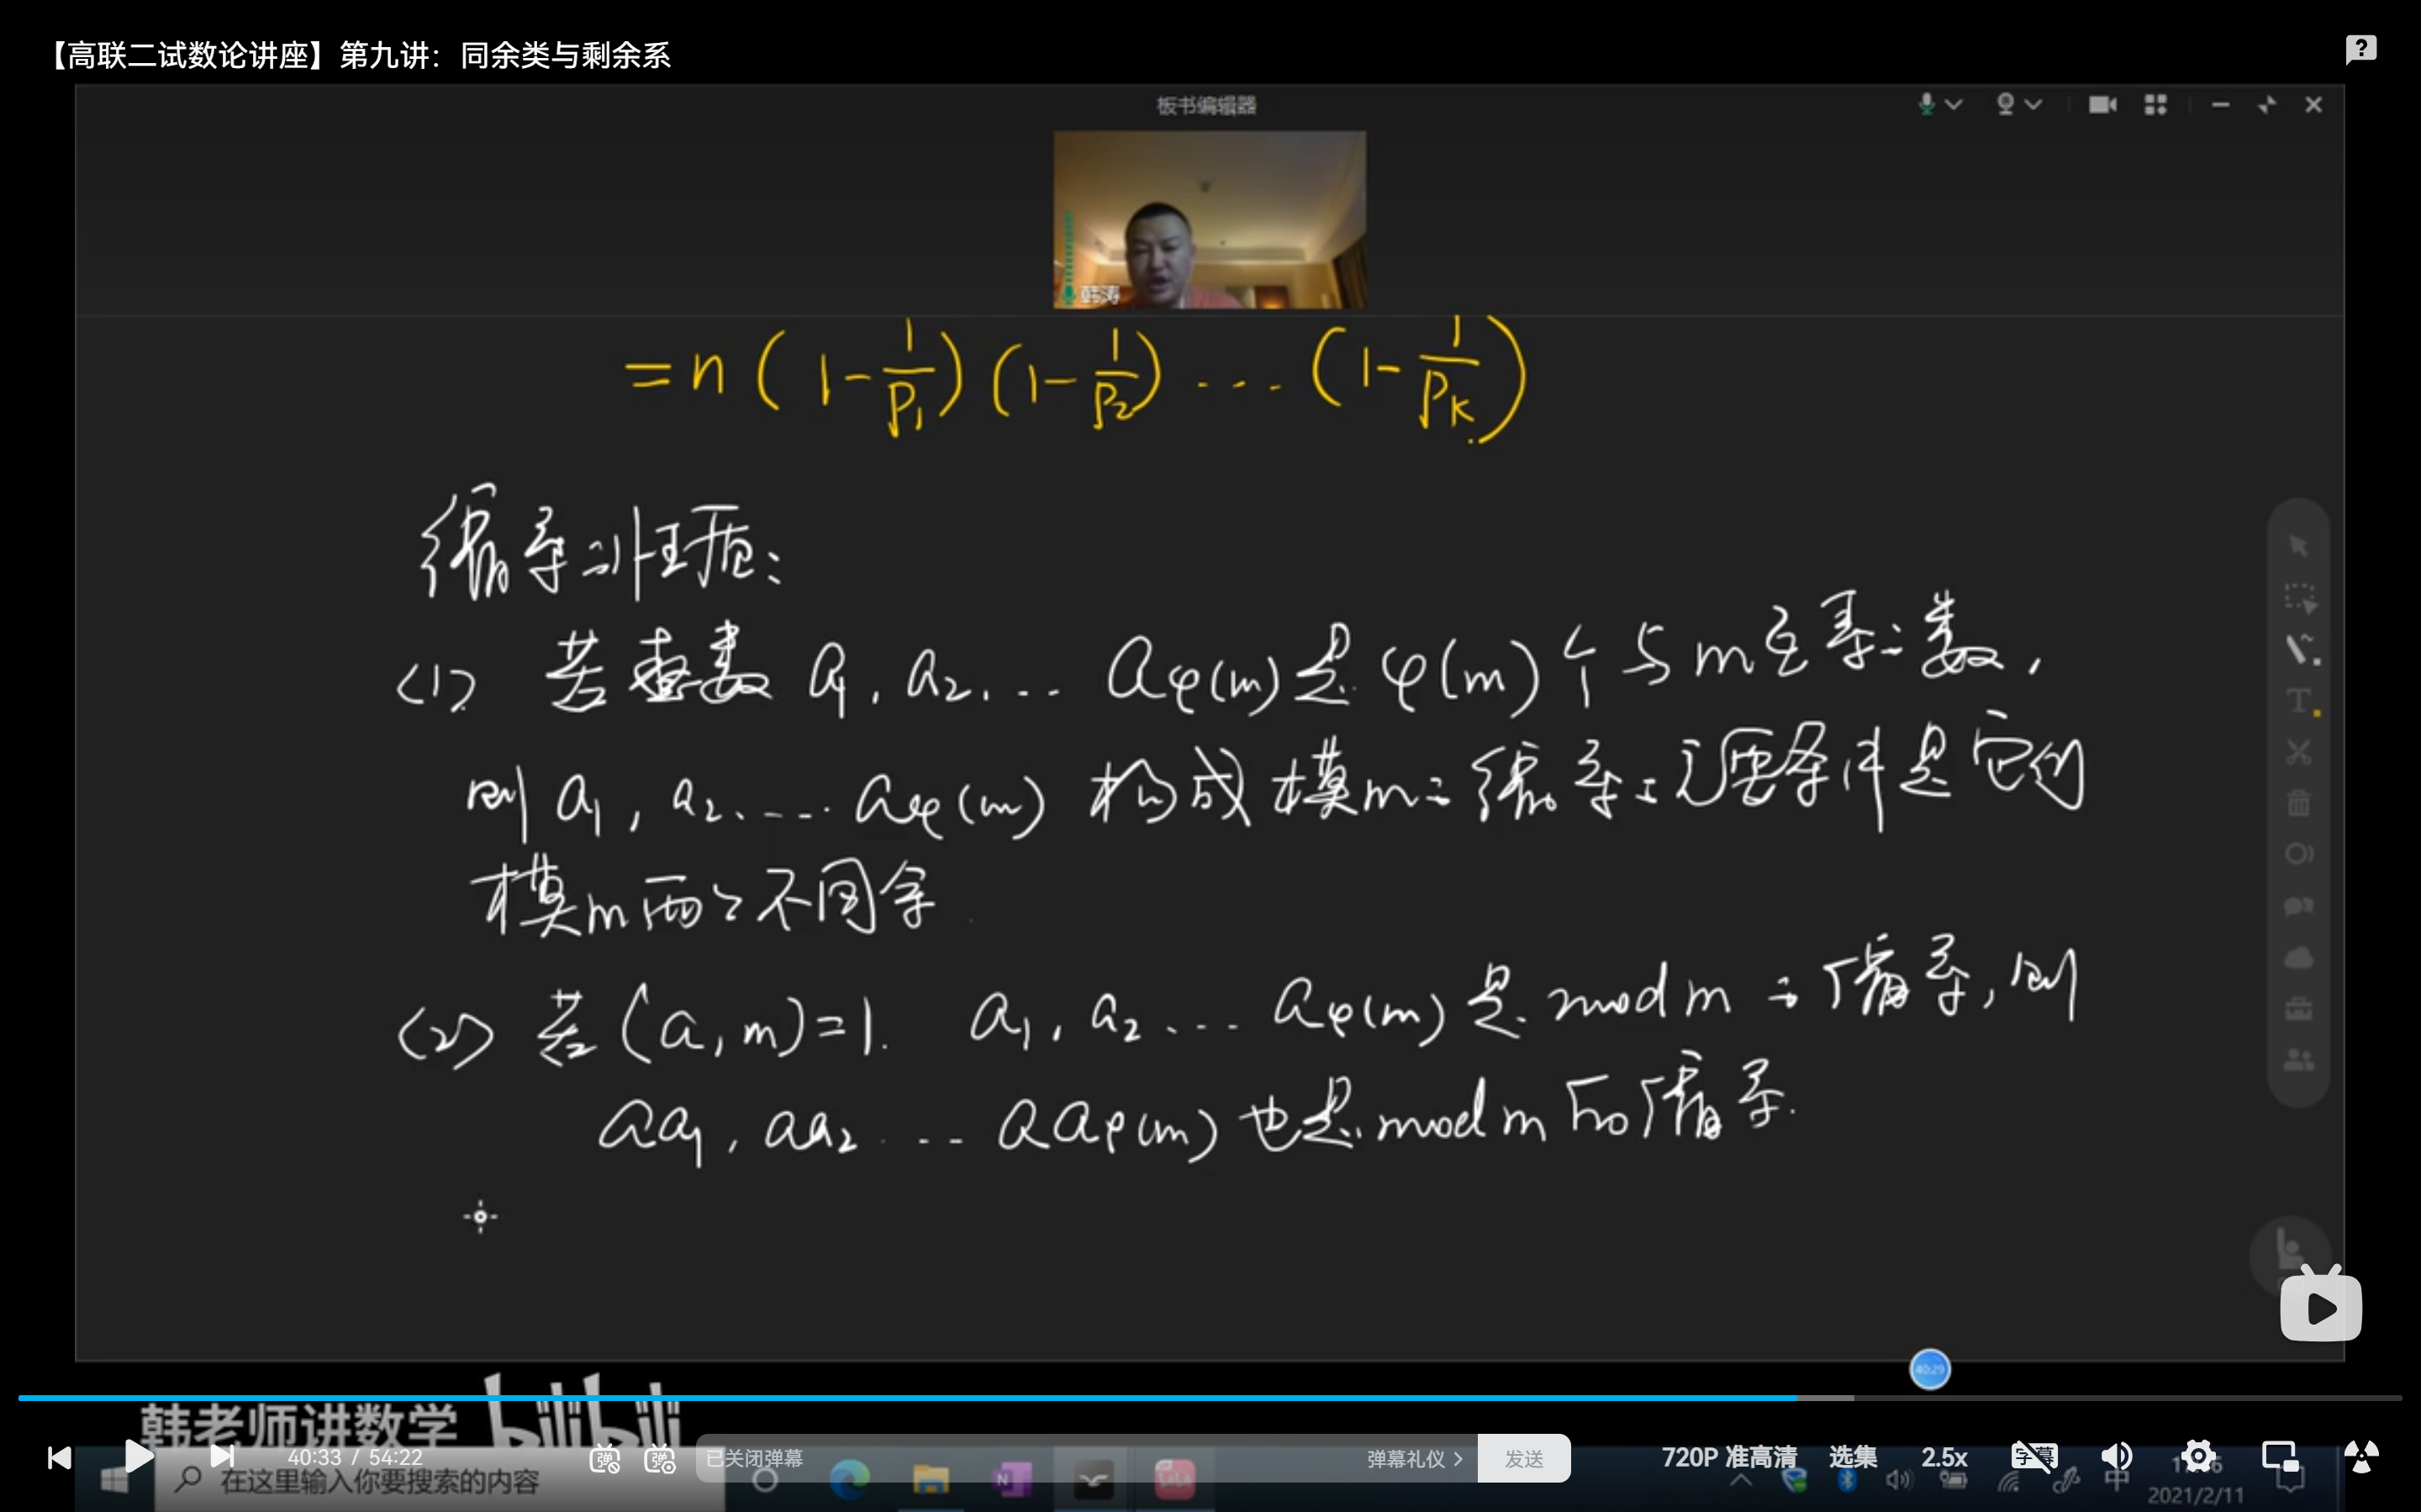 【高联二试数论讲座】第九讲：同余类与剩余系
板书编辑器
韩涛
=n(1-1/p₁)(1-1/p₂)...(1-1/pₖ)
缩系的性质：
(1) 若整数 a₁, a₂, ... aφ(m) 是 φ(m) 个与 m 互素的数,
则 a₁, a₂, ... aφ(m) 构成模 m 的缩系的充要条件是它们
模 m 两两不同余
(2) 若 (a, m)=1. a₁, a₂, ... aφ(m) 是 mod m 的缩系, 则
aa₁, aa₂ ... aaφ(m) 也是 mod m 的缩系.
40:29
韩老师讲数学 bilibili
40:33 / 54:22
已关闭弹幕
弹幕礼仪 >
发送
720P 准高清
选集
2.5x
在这里输入你要搜索的内容
中
2021/2/11